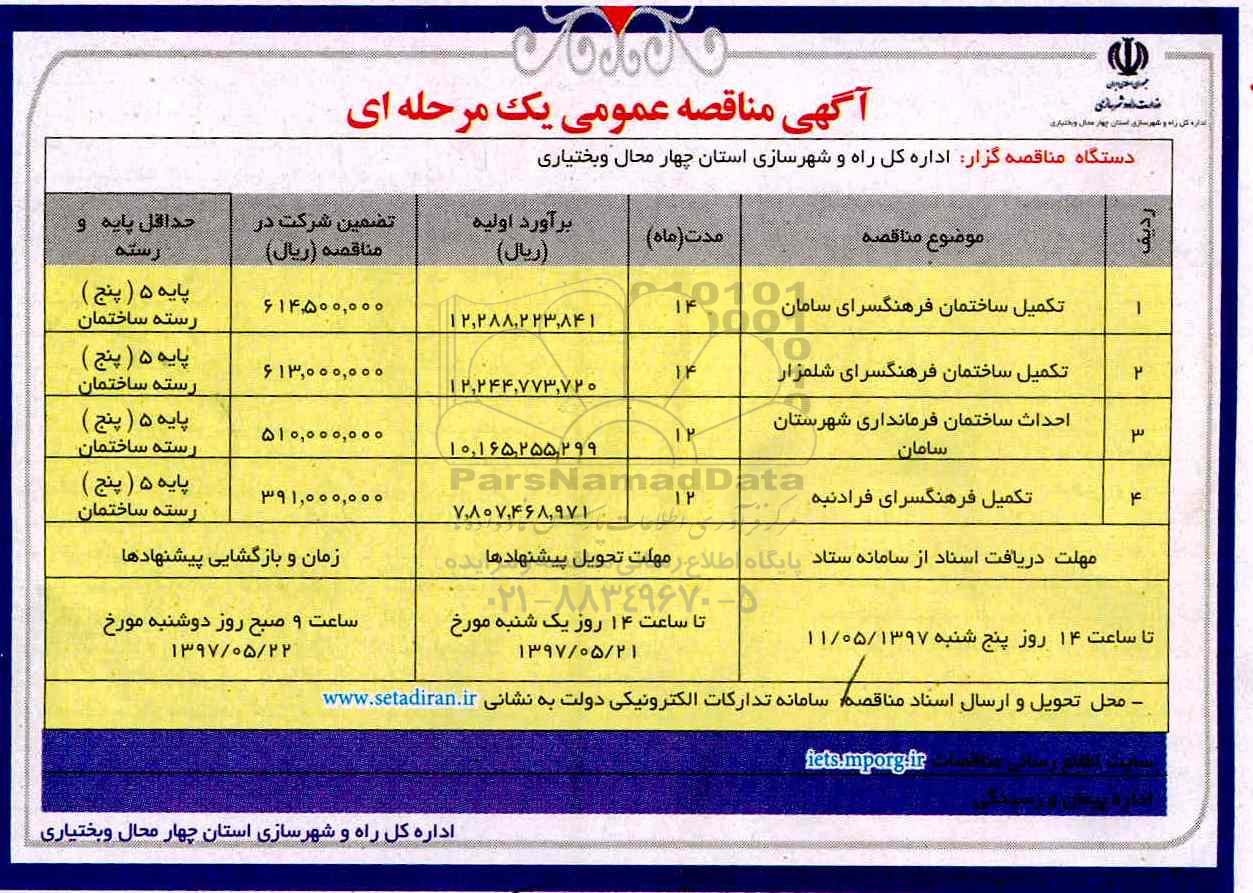 جمهوری اسلامی ایران
وزارت راه و شهرسازی
اداره کل راه و شهرسازی استان چهار محال وبختیاری
آگهی مناقصه عمومی یک مرحله ای
دستگاه مناقصه گزار: اداره کل راه و شهرسازی استان چهار محال وبختیاری
ردیف موضوع مناقصه مدت(ماه) برآورد اولیه (ریال) تضمین شرکت در مناقصه (ریال) حداقل پایه و رسته
۱ تکمیل ساختمان فرهنگسرای سامان ۱۴ ۱۲,۲۸۸,۲۲۳,۸۴۱ ۶۱۴,۵۰۰,۰۰۰ پایه ۵ ( پنج ) رسته ساختمان
۲ تکمیل ساختمان فرهنگسرای شلمزار ۱۴ ۱۲,۲۴۴,۷۷۳,۷۲۰ ۶۱۳,۰۰۰,۰۰۰ پایه ۵ ( پنج ) رسته ساختمان
۳ احداث ساختمان فرمانداری شهرستان سامان ۱۲ ۱۰,۱۶۵,۲۵۵,۲۹۹ ۵۱۰,۰۰۰,۰۰۰ پایه ۵ ( پنج ) رسته ساختمان
۴ تکمیل فرهنگسرای فرادنبه ۱۲ ۷,۸۰۷,۴۶۸,۹۷۱ ۳۹۱,۰۰۰,۰۰۰ پایه ۵ ( پنج ) رسته ساختمان
مهلت دریافت اسناد از سامانه ستاد مهلت تحویل پیشنهادها زمان و بازگشایی پیشنهادها
تا ساعت ۱۴ روز پنج شنبه ۱۱/۰۵/۱۳۹۷ تا ساعت ۱۴ روز یک شنبه مورخ ۱۳۹۷/۰۵/۲۱ ساعت ۹ صبح روز دوشنبه مورخ ۱۳۹۷/۰۵/۲۲
– محل تحویل و ارسال اسناد مناقصه، سامانه تدارکات الکترونیکی دولت به نشانی www.setadiran.ir
سایت اطلاع رسانی مناقصات iets.mporg.ir
اداره پیمان و رسیدگی
اداره کل راه و شهرسازی استان چهار محال وبختیاری
ParsNamadData
پایگاه اطلاع رسانی مناقصه و مزایده
۰۲۱-۸۸۳۴۹۶۷۰-۵